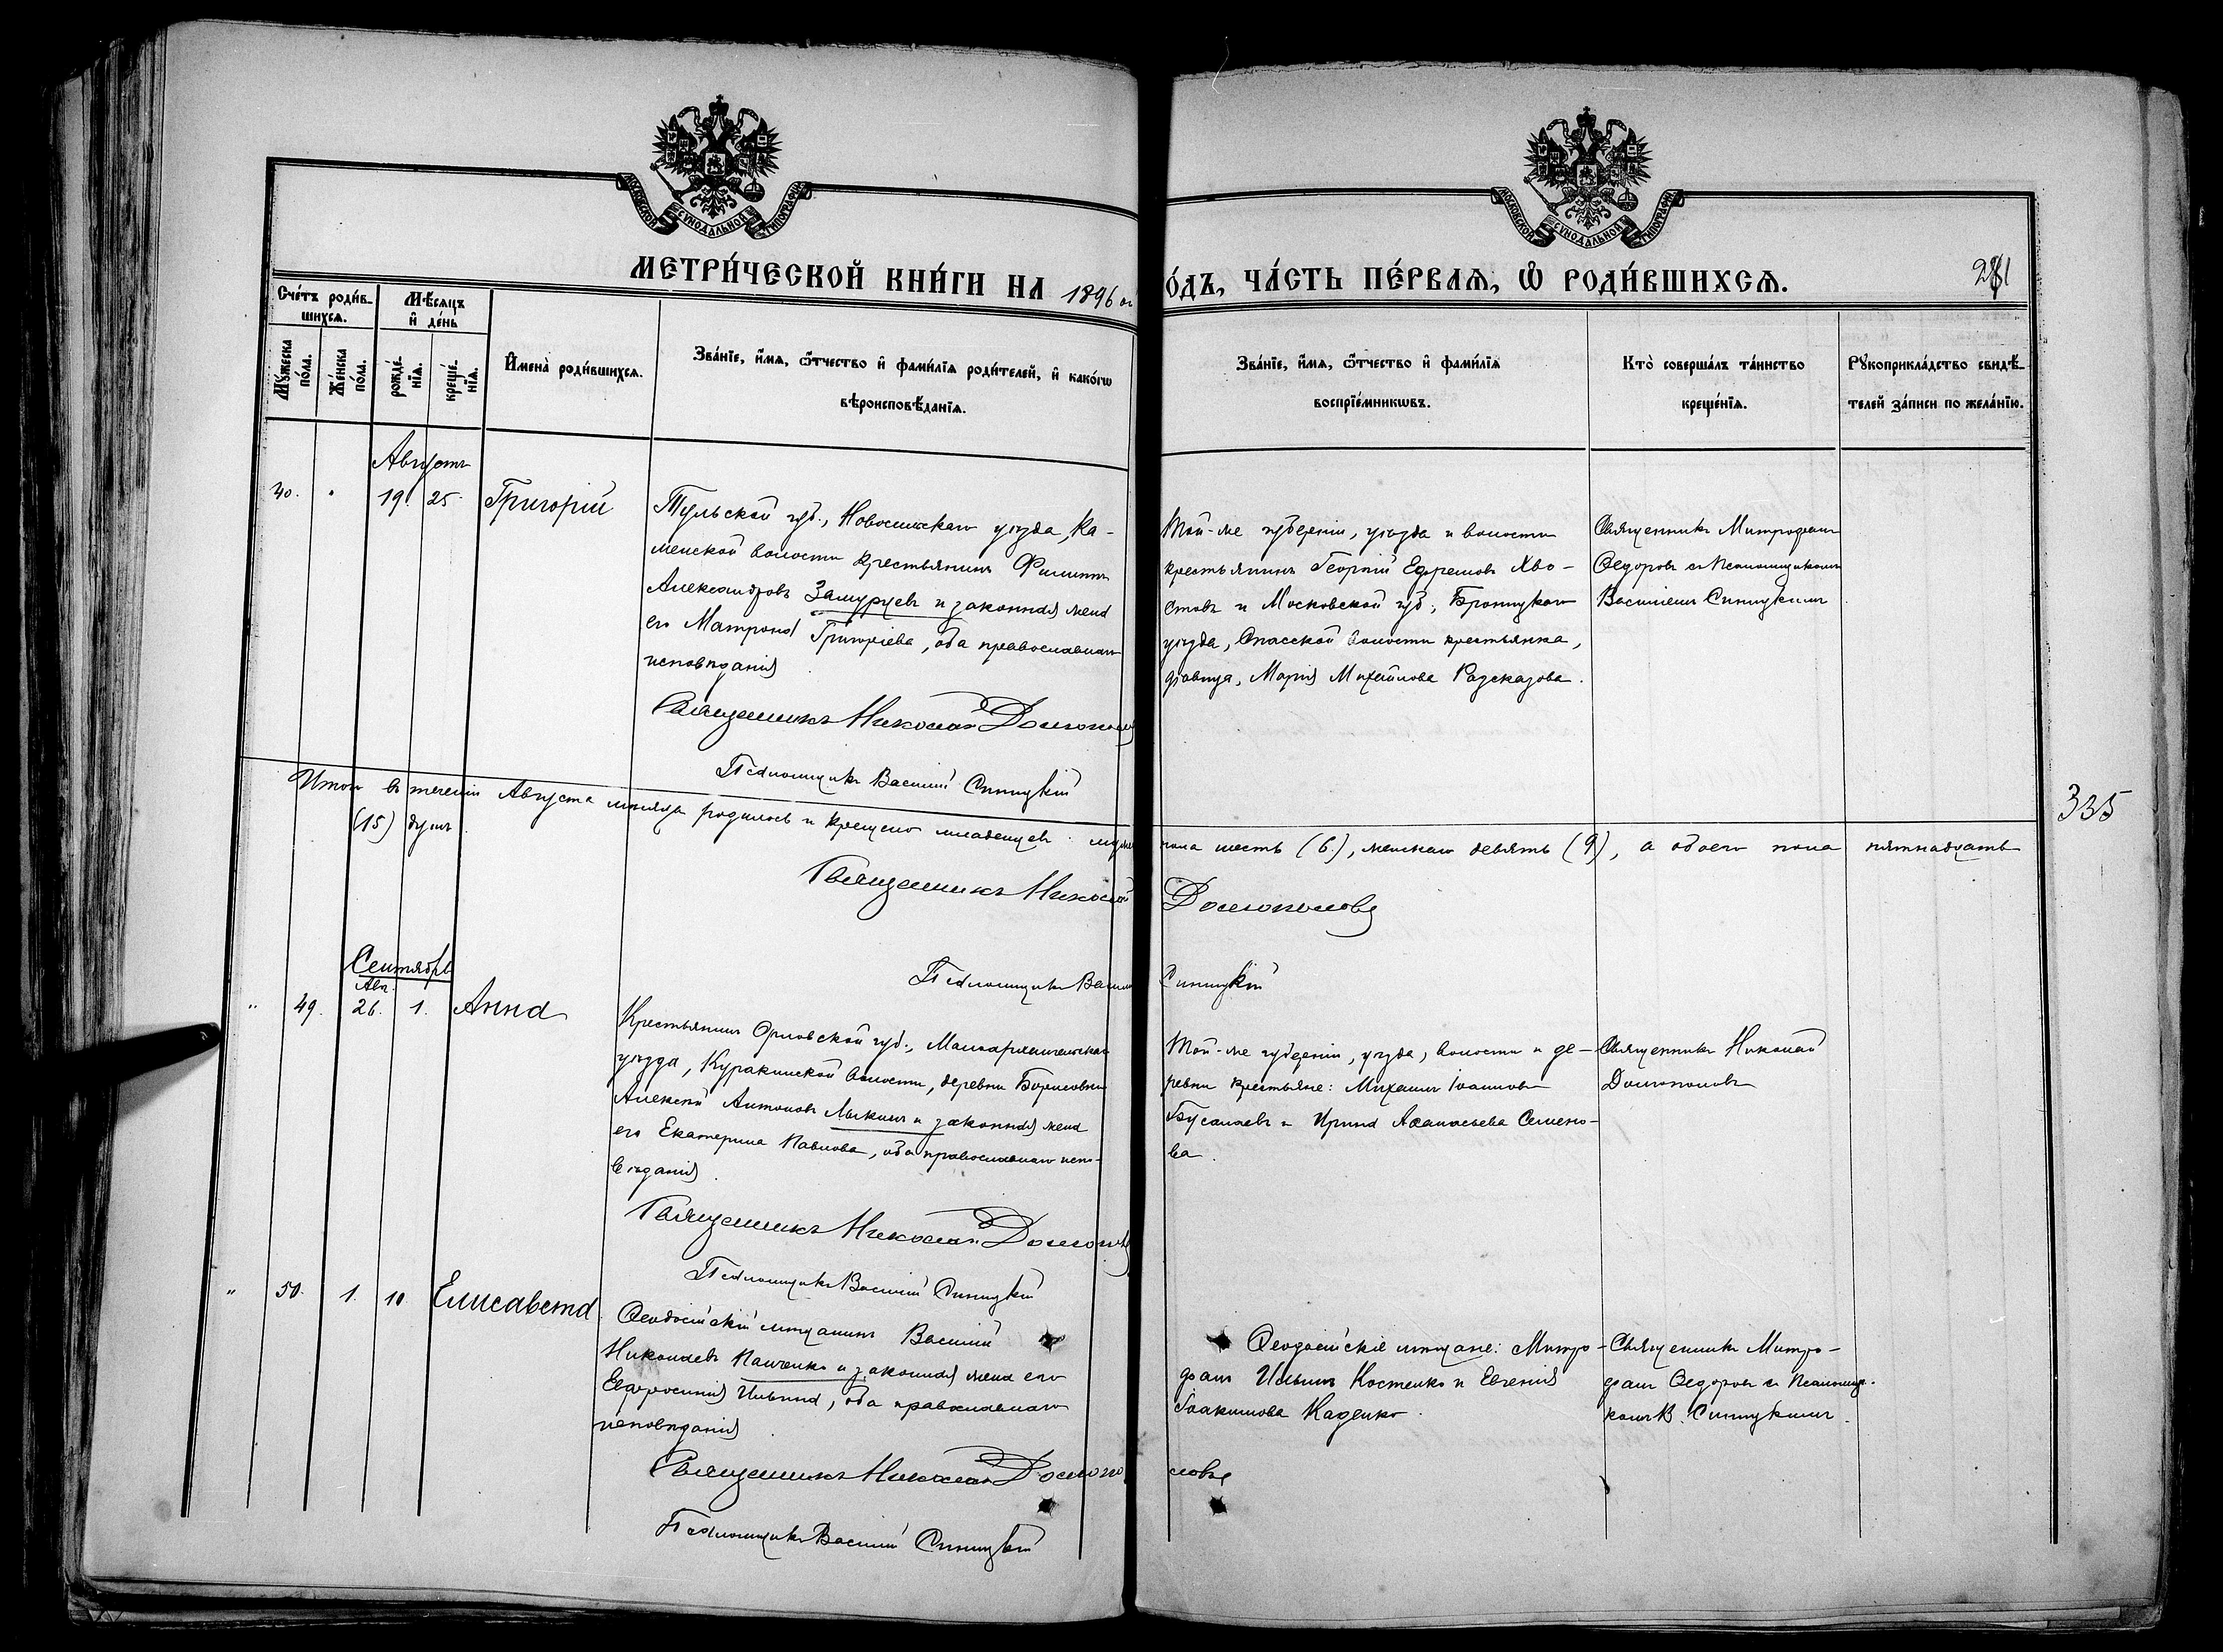 МОСКОВСКОЙ СѴНОДАЛЬНОЙ ТИПОГРАФІИ
МОСКОВСКОЙ СѴНОДАЛЬНОЙ ТИПОГРАФІИ
МЕТРИ́ЧЕСКОЙ КНИ́ГИ НА 1896 ой
О́ДЪ, ЧА́СТЬ ПЕ́РВАѦ, Ѡ҆ РОДИ́ВШИХСѦ.
281
Сче́тъ роди́в-
шихсѧ.
Мꙋ́жеска
по́ла.
Же́нска
по́ла.
Мѣ́сѧцъ
и҆ де́нь
рожде́-
нїѧ.
креще́-
нїѧ.
И҆мена̀ роди́вшихсѧ.
Зва́нїе, и҆́мѧ, ѻ҆́тчество и҆ фами́лїѧ роди́телей, и҆ како́гѡ
вѣроисповѣ́данїѧ.
Зва́нїе, и҆́мѧ, ѻ҆́тчество и҆ фами́лїѧ
воспрїе́мникѡвъ.
Кто̀ соверша́лъ та́инство
креще́нїѧ.
Рꙋкоприкла́дство свидѣ́-
телей за́писи по жела́нїю.
Августъ
40. " 19. 25. Григорій
Тульской губ., Новосильскаго уѣзда, Ка-
менской волости крестьянинъ Филиппъ
Александровъ Замуруевъ и законная жена
его Матрона Григоріева, оба православнаго
исповѣданія
Священникъ Николай Долгополовъ
Псаломщикъ Василій Синицкій
Той-же губерніи, уѣзда и волости
крестьянинъ Георгій Ефремовъ Хво-
стовъ и Московской губ., Бронницкаго
уѣзда, Спасской волости крестьянка,
дѣвица, Марія Михайлова Разсказова.
Священникъ Митрофанъ
Ѳедоровъ съ Псаломщикомъ
Василіемъ Синицкимъ
Итого въ теченіи Августа мѣсяца родилось и крещено младенцевъ: муж.
пола шесть (6), женскаго девять (9), а обоего пола пятнадцать
(15) душъ.
Священникъ Николай Долгополовъ
Псаломщикъ Василій Синицкій
335
Сентябрь
Авг.
" 49. 26. 1. Анна
Крестьянинъ Орловской губ., Малоархангельскаго
уѣзда, Куракинской волости, деревни Борисовки
Алексѣй Антоновъ Лыкинъ и законная жена
его Екатерина Павлова, оба православнаго испо-
вѣданія.
Священникъ Николай Долгополовъ
Псаломщикъ Василій Синицкій
Той-же губерніи, уѣзда, волости и де-
ревни крестьяне: Михаилъ Іоанновъ
и Ирина Аѳанасьева Семено-
ва.
Священникъ Николай
Долгополовъ
" 50. 1. 10. Елисавета
Ѳеодосійскій мѣщанинъ Василій
Николаевъ Панченко и законная жена его
Евфросинія Ильина, оба православнаго
исповѣданія.
Священникъ Николай Долгополовъ
Псаломщикъ Василій Синицкій
Ѳеодосійскіе мѣщане: Митро-
фанъ Ильинъ Костенко и Евгенія
Іоакимова Каденко.
Священникъ Митро-
фанъ Ѳедоровъ съ Псаломщи-
комъ В. Синицкимъ.